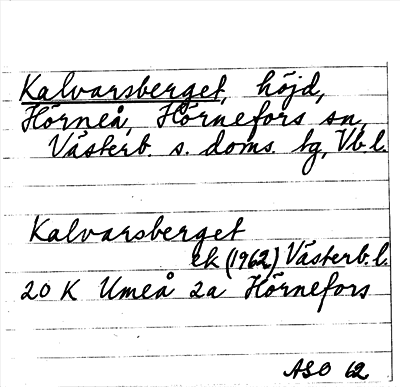 Kalvarsberget, höjd,
Hörneå, Hörnefors sn,
Västerb. s. doms. tg, Vb. l.
Kalvarsberget
ek (1962) Västerb. l.
20 K Umeå 2a Hörnefors
ASO 62